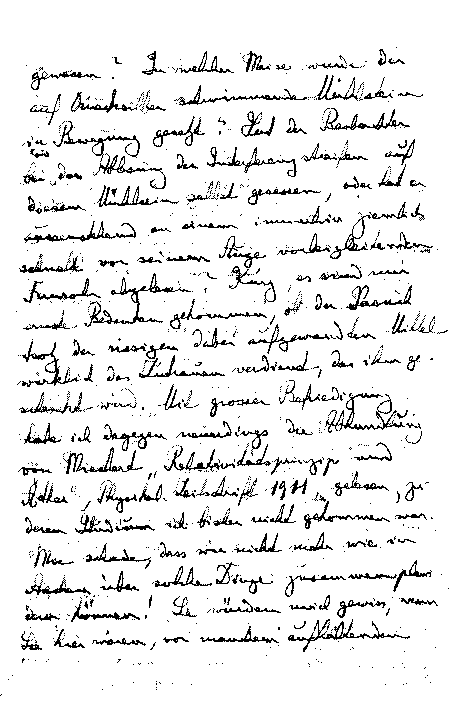 gewesen? In welcher Weise wurde der
auf Quecksilber schwimmende Mühlstein
in Bewegung gesetzt? Hat der Beobachter
bei der Ablesung der Interferenzstreifen auf
diesem Mühlstein selbst gesessen, oder hat er
aussenstehend an einem immerhin ziemlich
schnell vor seinem Auge vorbeigleitenden
Fernrohr abgelesen? Kurz, es sind mir
Bedenken gekommen, ob der
trotz der riesigen dabei aufgewandten Mittel
wirklich das Zutrauen verdient, das ihm ge-
schenkt wird. Mit grosser Befriedigung
habe ich dagegen neuerdings die Abhandlung
von Wiechert, "Relativitätsprinzip und
Äther", Physikal. Zeitschrift 1911, gelesen, zu
deren Studium ich bisher nicht gekommen war.
Wie schade, dass wir nicht mehr wie in
Aachen über solche Dinge zusammen
können! Sie würden mich gewiss, wenn
Sie hier wären, von manchem